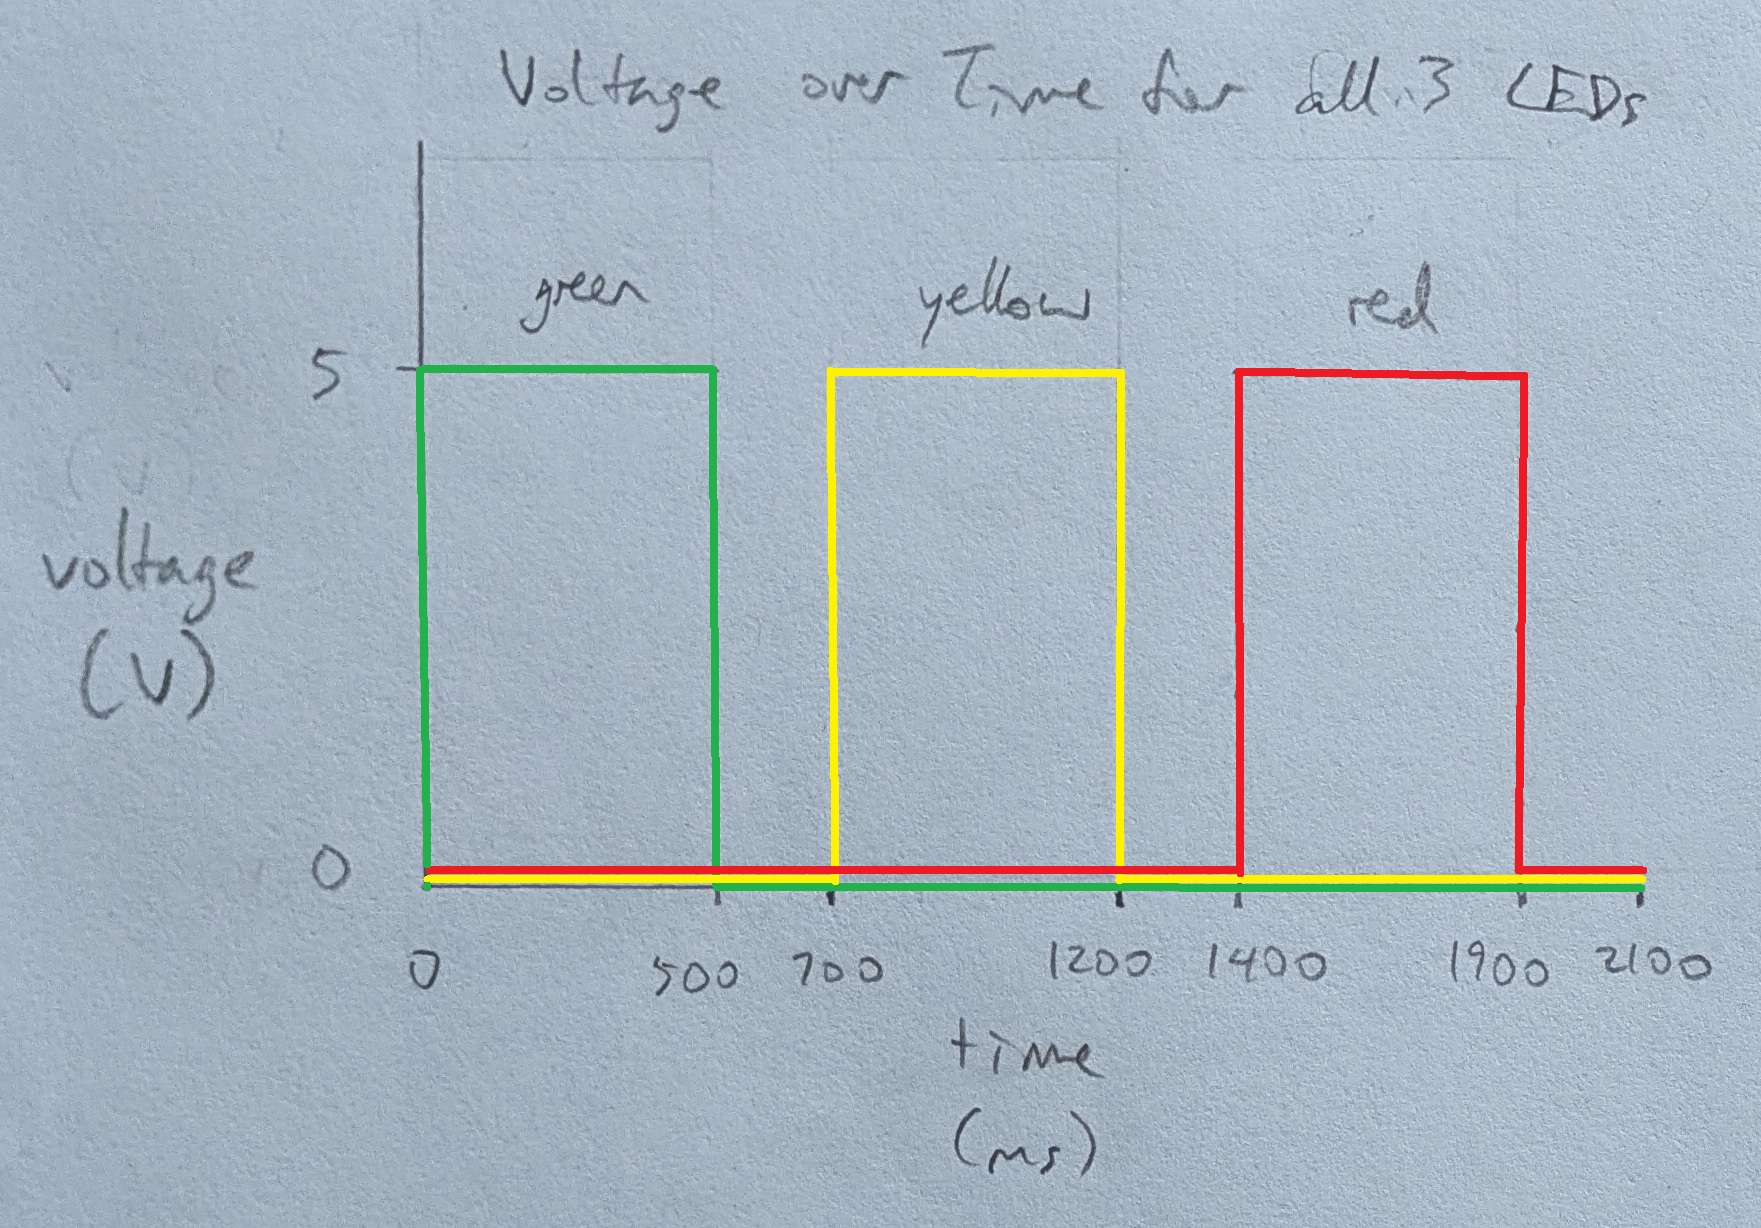 Voltage over Time for all 3 LEDs
green yellow red
5
voltage
(V)
0
0 500 700 1200 1400 1900 2100
time
(ms)